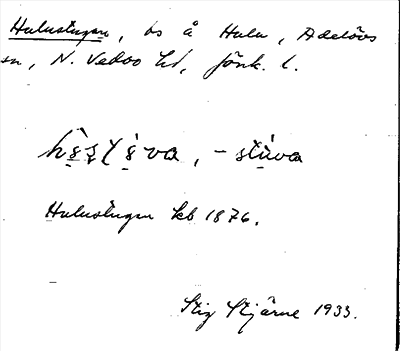 Hulustugan, bs å Hulu, Adelövs
sn, N. Vedbo hd, Jönk. l.
-stùva
Hulustugan kb 1876.
Stig Stjärne 1933.